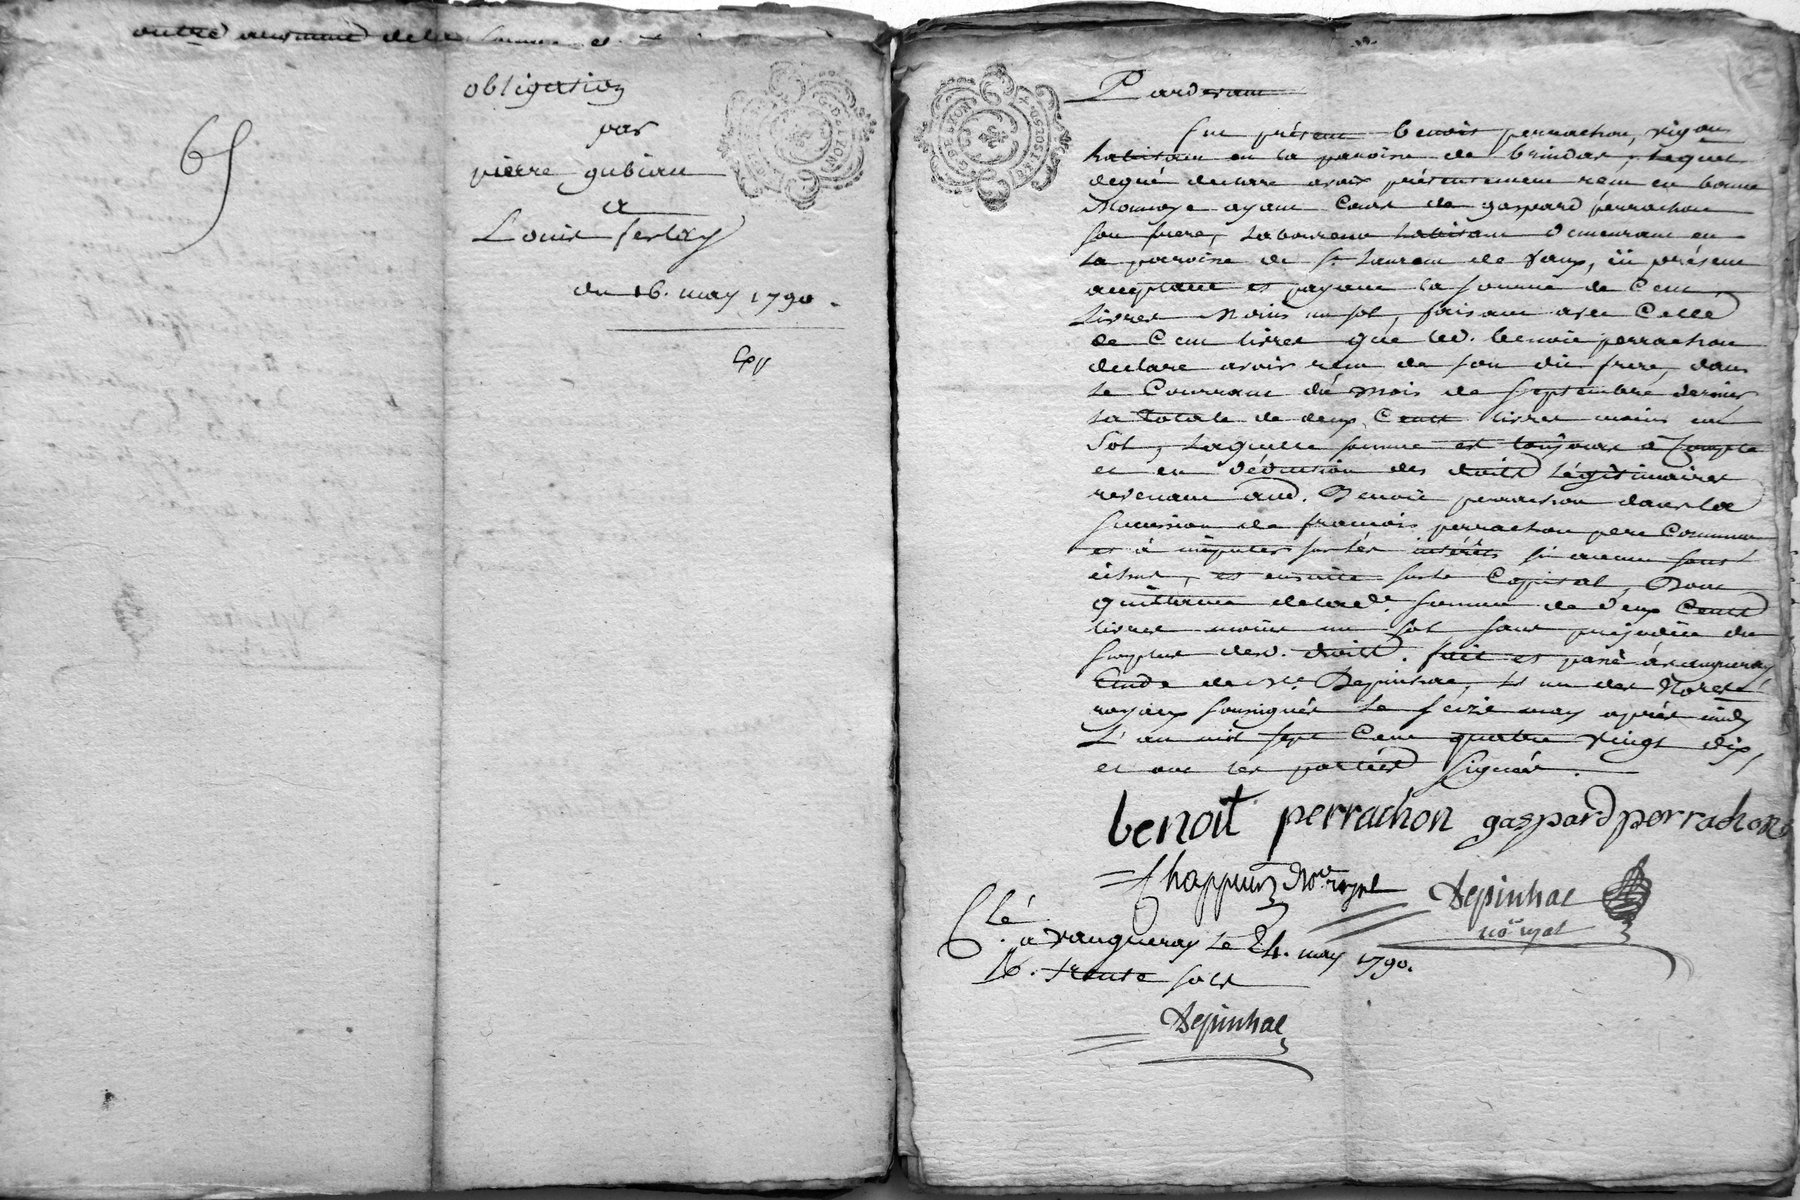 obligation
par
pierre gubian
a
Louis ferlay
du 16. may 1790.
65
Pardevant
fut présent benoit perrachon, vigon
habitant en la paroisse de brindas, lequel
de gré declare avoir présentement reçu en bonne
Monnoye ayant Cours de gaspard perrachon
son frere, Laboureur habitant demeurant en
la paroisse de St. Laurent de Vaux, ici présent
acceptant et payant la somme de Cent
livres moins un sol, faisant avec Celle
de Cent livres que led. benoit perrachon
declare avoir reçu de son dit frere, dans
le Courrant du mois de septembre dernier
la totale de deux Cents livres moins un
sol, laquelle somme est toujours à Compte
et en déduction des droits légitimaires
revenant aud. Benoit perrachon dans la
succession de francois perrachon pere Commun
et à imputer sur les intérêts si aucun sont
échus, et ensuite sur le Capital, Dont
quittance de lad. somme de deux Cents
livres moins un sol sans préjudice du
surplus desd. droits. fait et passé à vaugneray
Etude de Me. Depinhac, L'un des Nores.
royaux soussignés le seize may après midy
L'an mil sept Cent quatre vingt dix,
et ont les parties signés.
benoit perrachon gaspard perrachon
Chappuis Nore. royal
Depinhac
no. royal
Clé.
à vaugneray le 24. may 1790.
R. trente sols
Depinhac
G. DE LYON